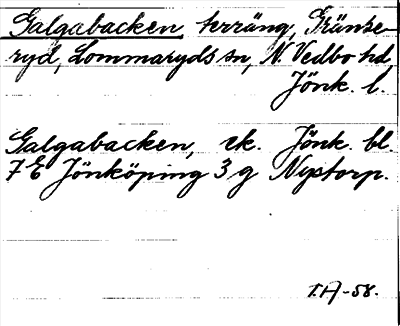 Galgabacken, terräng, Gränse-
ryd, Lommaryds sn, N. Vedbo hd
Jönk. l.
Galgabacken, ek. Jönk. bl.
7 E Jönköping 3 g Nystorp.
I.A-58.